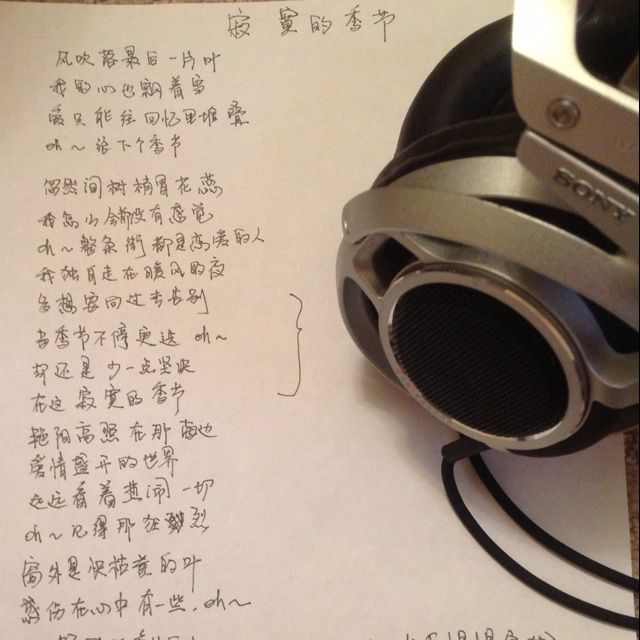 寂寞的季节
风吹落最后一片叶
我的心也飘着雪
爱只能往回忆里堆叠
oh~给下个季节
忽然间树梢冒花蕊
我怎么会都没有感觉
oh~整条街都是恋爱的人
我独自走在暖风的夜
多想要向过去告别
当季节不停更迭 oh~
却还是少一点坚决
在这寂寞的季节
艳阳高照在那海边
爱情盛开的世界
远远看着热闹一切
oh~记得那狂烈
窗外是快枯黄的叶
感伤在心中有一些，oh~
SONY